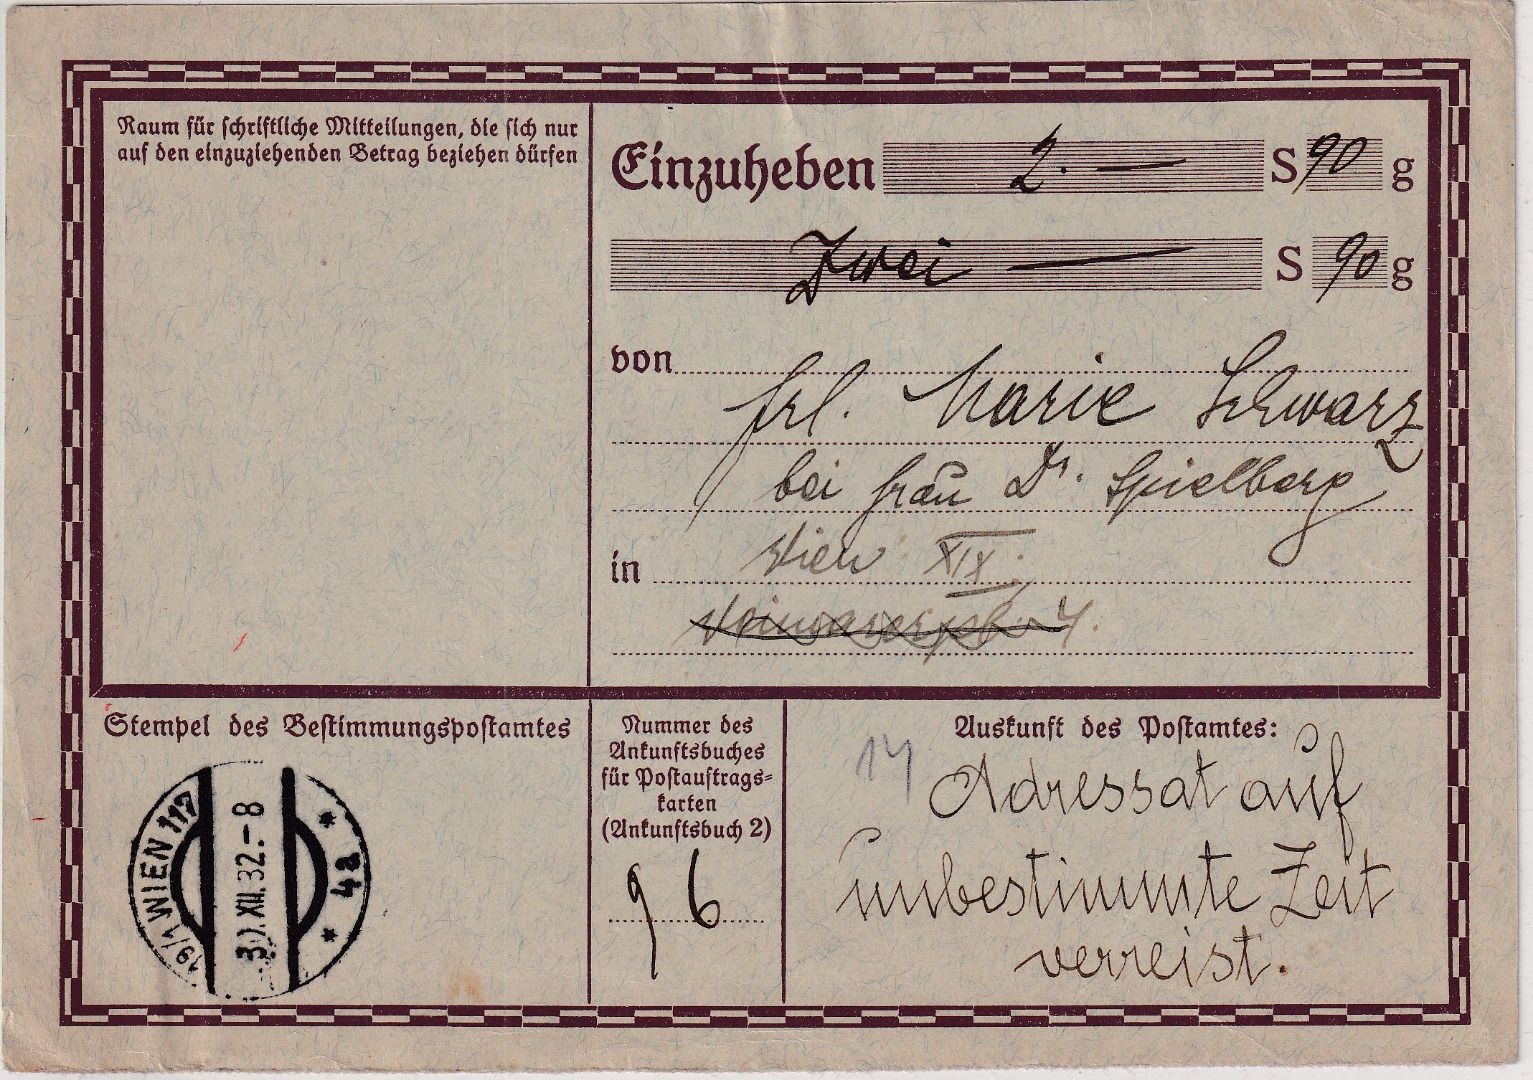 Raum für schriftliche Mitteilungen, die sich nur
auf den einzuziehenden Betrag beziehen dürfen
Einzuheben 2.— S 90 g
Zwei — S 90 g
von
Frl. Marie Schwarz
bei Frau Dr. Spielberg
in Wien XIX.
4.
Stempel des Bestimmungspostamtes
19/1 WIEN 117
30.XII.32.-8
* 4a *
Nummer des
Ankunftsbuches
für Postauftrags-
karten
(Ankunftsbuch 2)
96
Auskunft des Postamtes:
14
Adressat auf
unbestimmte Zeit
verreist.